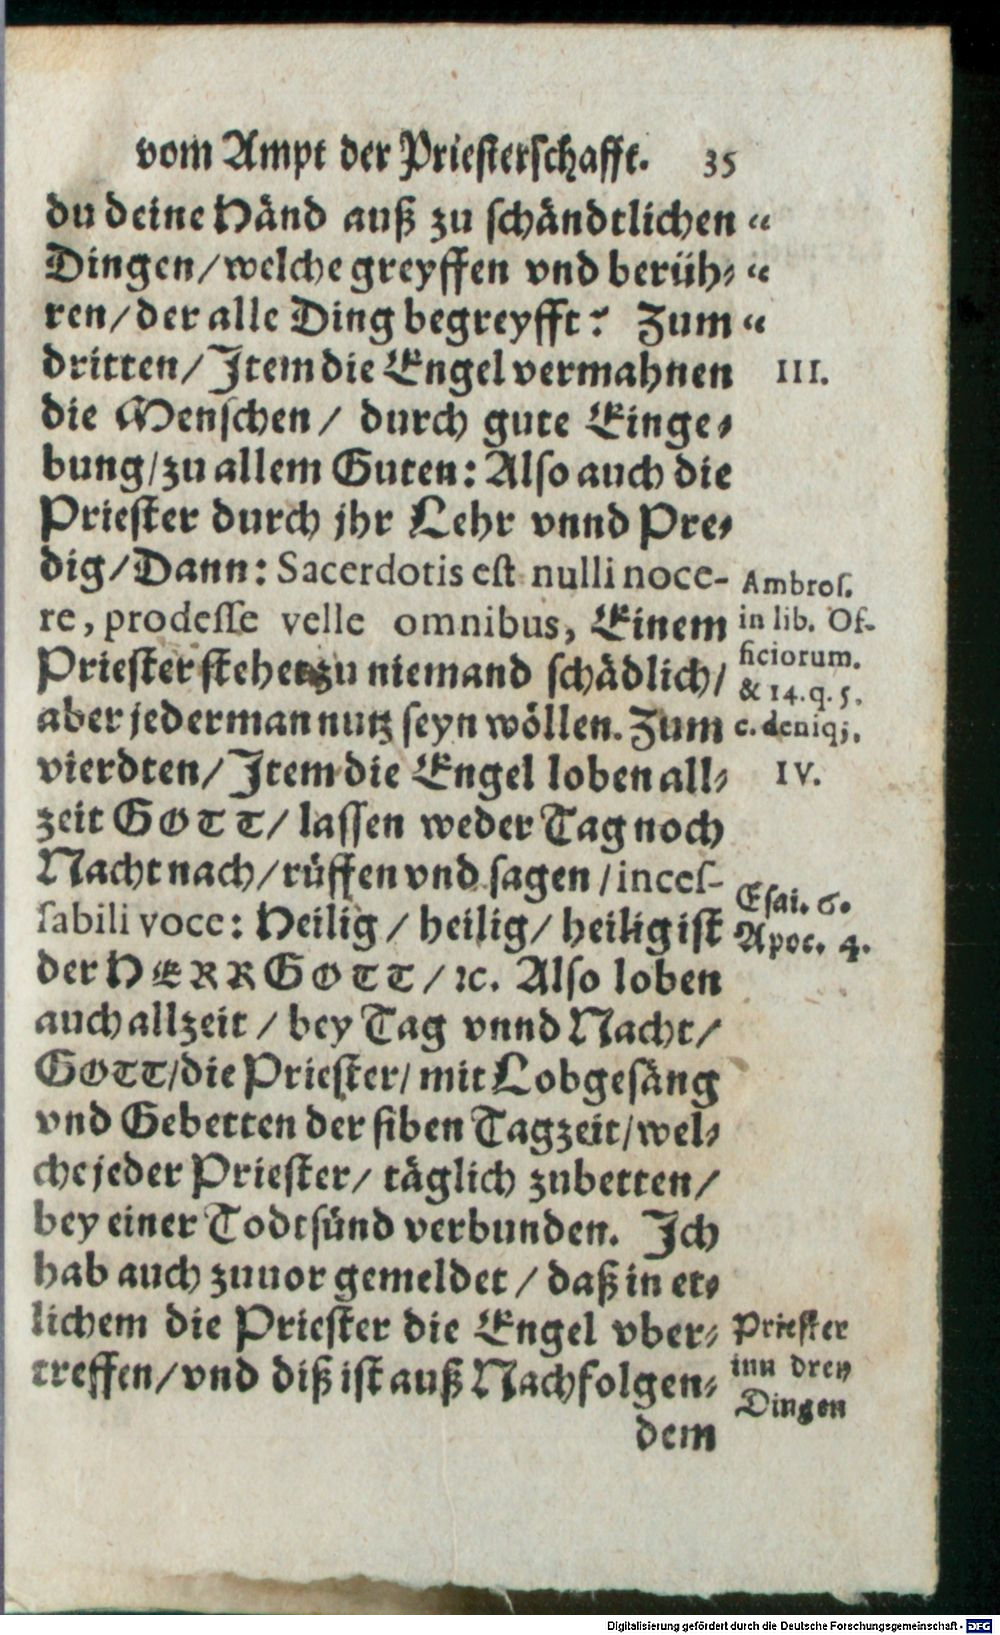 vom Ampt der Priesterschafft. 35
du deine Händ auß zu schändtlichen “
Dingen/welche greyffen vnd berüh- “
ren/der alle Ding begreyfft? Zum “
dritten/Item die Engel vermahnen III.
die Menschen/ durch gute Einge-
bung/zu allem Guten: Also auch die
Priester durch jhr Lehr vnnd Pre-
dig/Dann: Sacerdotis est nulli noce-
re, prodesse velle omnibus, Einem
Priester stehet zu niemand schädlich/
aber jederman nutz seyn wöllen. Zum
Ambros.
in lib. Of-
ficiorum.
& 14. q. 5.
c. deniq;.
vierdten/Item die Engel loben all- IV.
zeit GOTT/ lassen weder Tag noch
Nacht nach/rüffen vnd sagen/inces-
sabili voce: Heilig/ heilig/ heilig ist
Esai. 6.
Apoc. 4.
der HERR GOTT/ꝛc. Also loben
auch allzeit/ bey Tag vnnd Nacht/
GOTT/die Priester/mit Lobgesäng
vnd Gebetten der siben Tagzeit/wel-
che jeder Priester/ täglich zubetten/
bey einer Todtsünd verbunden. Ich
hab auch zuuor gemeldet/ daß in et-
lichem die Priester die Engel vber-
treffen/vnd diß ist auß Nachfolgen-
Priester
inn drey
Dingen
dem
Digitalisierung gefördert durch die Deutsche Forschungsgemeinschaft - DFG